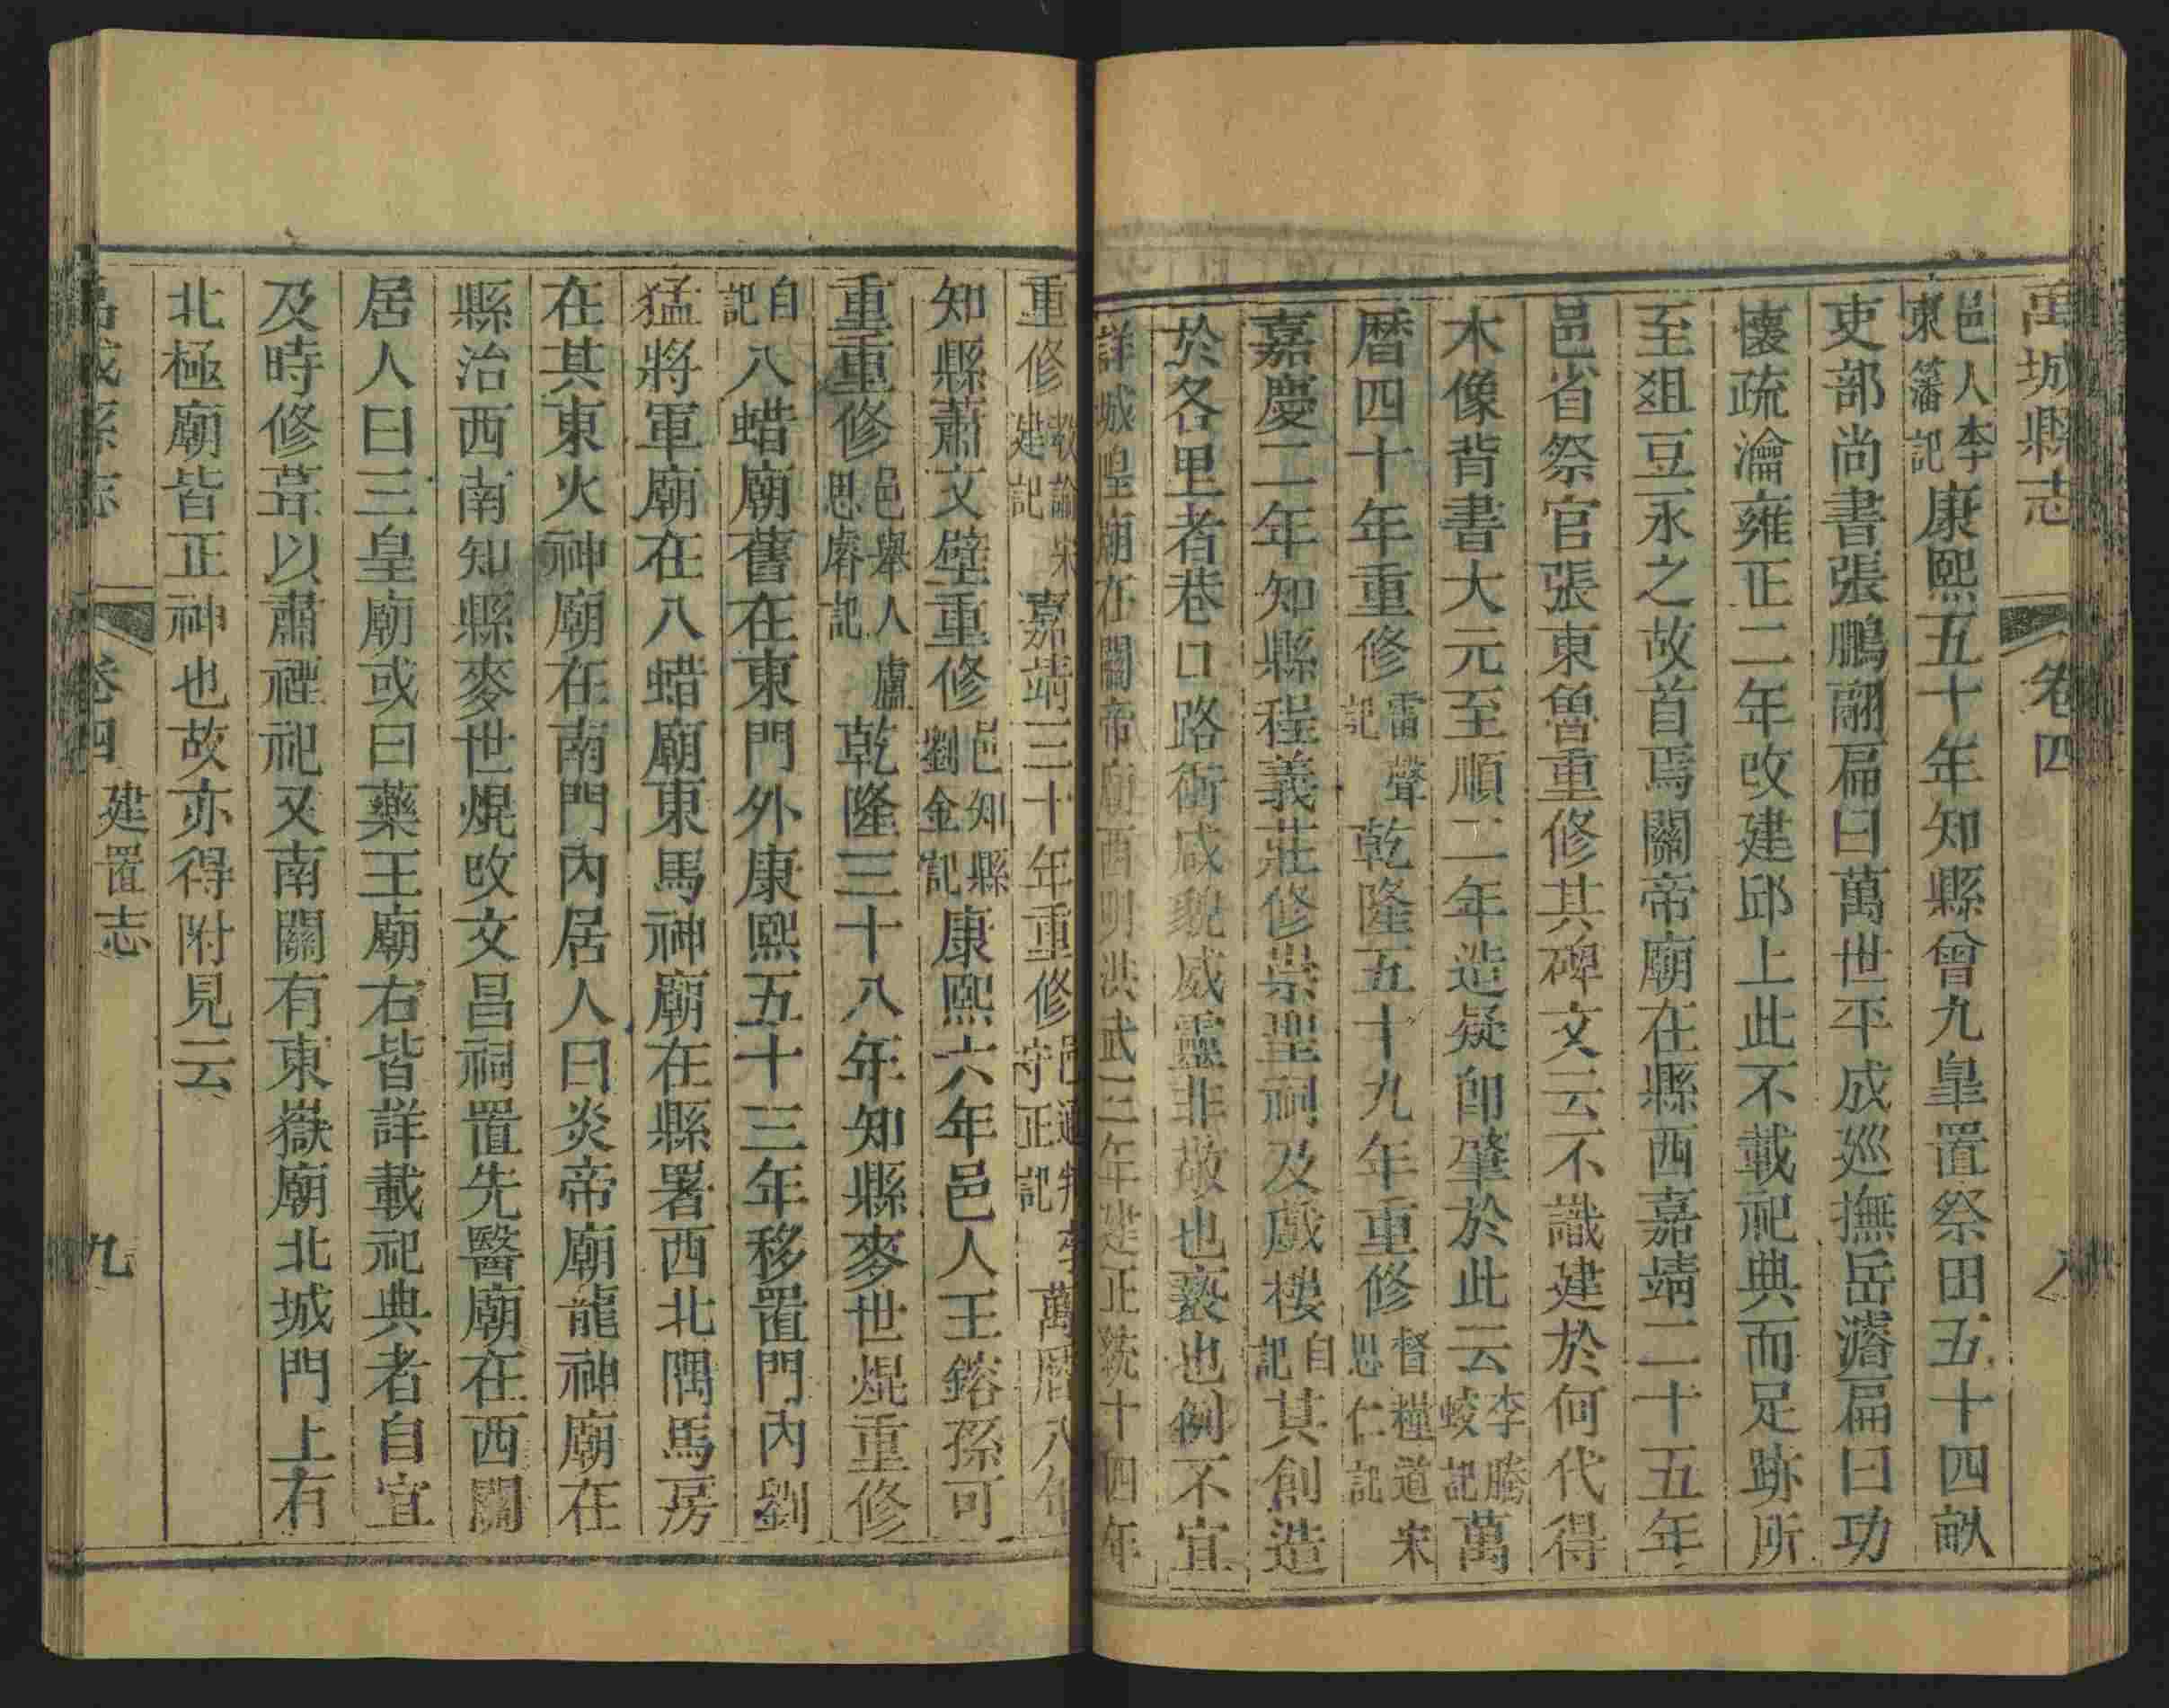 禹城縣志 卷四 八
邑人李東籓記康熙五十年知縣曾九皐置祭田五十四畝
吏部尚書張鵬翮扁曰萬世平成巡撫岳濬扁曰功
懷疏瀹雍正二年改建邱上此不載祀典而足跡所
至爼豆永之故首焉關帝廟在縣西嘉靖二十五年
邑省祭官張東魯重修其碑文云不識建於何代得
木像背書大元至順二年造疑卽肇於此云李騰蛟記萬
暦四十年重修雷聲記乾隆五十九年重修督糧道宋思仁記
嘉慶二年知縣程義莊修崇聖祠及戲樓自記其創造
於各里者巷口路衝咸貌威靈非敬也褻也例不宜
詳城隍廟在關帝廟西明洪武三年建正統十四年
重修教諭宋建記嘉靖三十年重修邑通判李守正記萬曆八年
知縣蕭文壁重修邑知縣劉金記康熙六年邑人王鎔孫可
重重修邑舉人盧思睿記乾隆三十八年知縣麥世焜重修
自記八蜡廟舊在東門外康熙五十三年移置門內劉
猛將軍廟在八蜡廟東馬神廟在縣署西北隅馬房
在其東火神廟在南門內居人曰炎帝廟龍神廟在
縣治西南知縣麥世焜改文昌祠置先醫廟在西關
居人曰三皇廟或曰藥王廟右皆詳載祀典者自宜
及時修葺以肅禋祀又南關有東嶽廟北城門上有
北極廟皆正神也故亦得附見云
禹城縣志 卷四 建置志 九